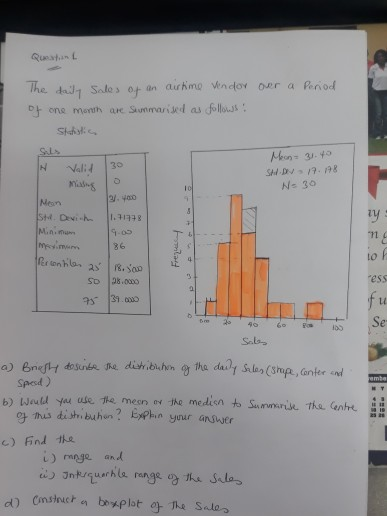 Question 1
The daily Sales of an airtime vendor over a Period
of one month are summarised as follows:
Statistics
Sales
N Valid 30
Missing 0
Mean 31.400
Std. Deviatn 1.71778
Minimum 9.00
maximum 86
Percentiles 25 18.5000
50 28.0000
75 39.0000
Mean = 31.40
Std. Dev = 17.178
N = 30
Frequency
0.00 20 40 60 80.0 100
Sales
a) Briefly describe the distribution of the daily Sales (Shape, Center and
Spread)
b) Would you use the mean or the median to Summarise the Centre
of this distribution? Explain your answer
c) Find the
i) range and
ii) Interquartile range of the Sales
d) Construct a boxplot of the Sales